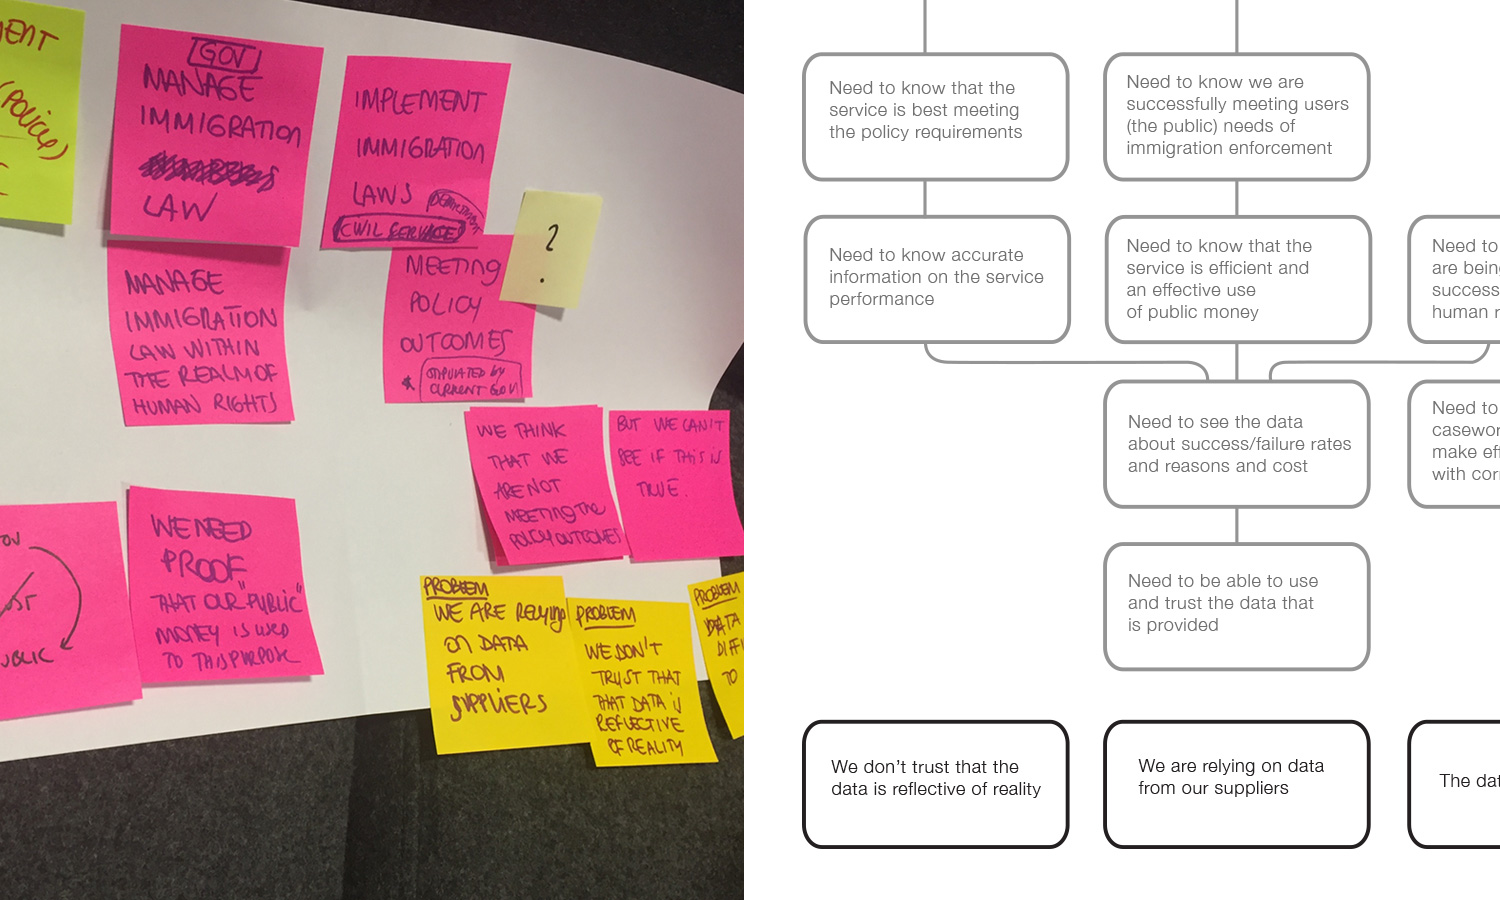 (POLICY)
GOV
MANAGE
IMMIGRATION
LAW
IMPLEMENT
IMMIGRATION
LAWS
CIVIL SERVICE
?
MANAGE
IMMIGRATION
LAW WITHIN
THE REALM OF
HUMAN RIGHTS
MEETING
POLICY
OUTCOMES
* STIPULATED by
CURRENT GOV
WE THINK
THAT WE
ARE NOT
MEETING THE
POLICY OUTCOMES
BUT WE CAN'T
SEE IF THIS IS
TRUE.
WE NEED
PROOF
THAT OUR "PUBLIC"
MONEY IS USED
TO THIS PURPOSE
PROBLEM
WE ARE RELYING
ON DATA
FROM
SUPPLIERS
PROBLEM
WE DON'T
TRUST THAT
THAT DATA IS
REFLECTIVE
OF REALITY
PROBLEM
DATA
DIFFI
TO
Need to know that the
service is best meeting
the policy requirements
Need to know we are
successfully meeting users
(the public) needs of
immigration enforcement
Need to know accurate
information on the service
performance
Need to know that the
service is efficient and
an effective use
of public money
Need to
are being
success
human r
Need to see the data
about success/failure rates
and reasons and cost
Need to
casewor
make eff
with corr
Need to be able to use
and trust the data that
is provided
We don't trust that the
data is reflective of reality
We are relying on data
from our suppliers
The dat